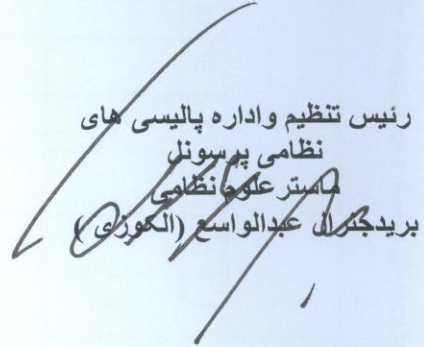 رئیس تنظیم واداره پالیسی های
نظامی پرسونل
ماستر علوم نظامی
بریدجنرال عبدالواسع (الکوزی)